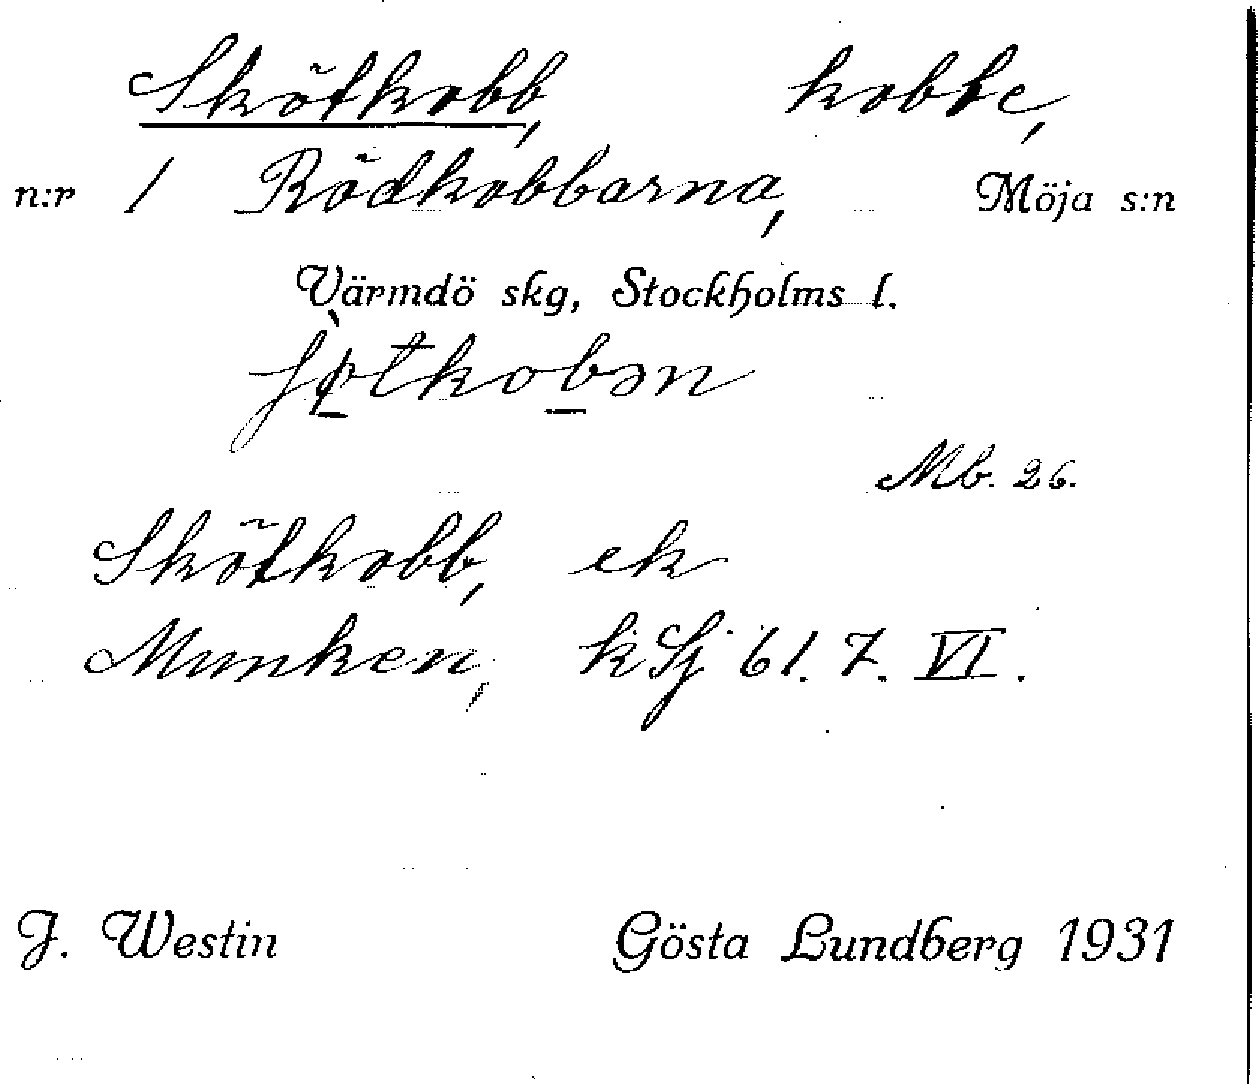 Skötkobb, kobbe,
n:r 1 Rödkobbarna, Möja s:n
Värmdö skg, Stockholms l.
Mb. 26.
Skötkobb, ek
Munken, k Sj 61. 7. VI.
J. Westin Gösta Lundberg 1931